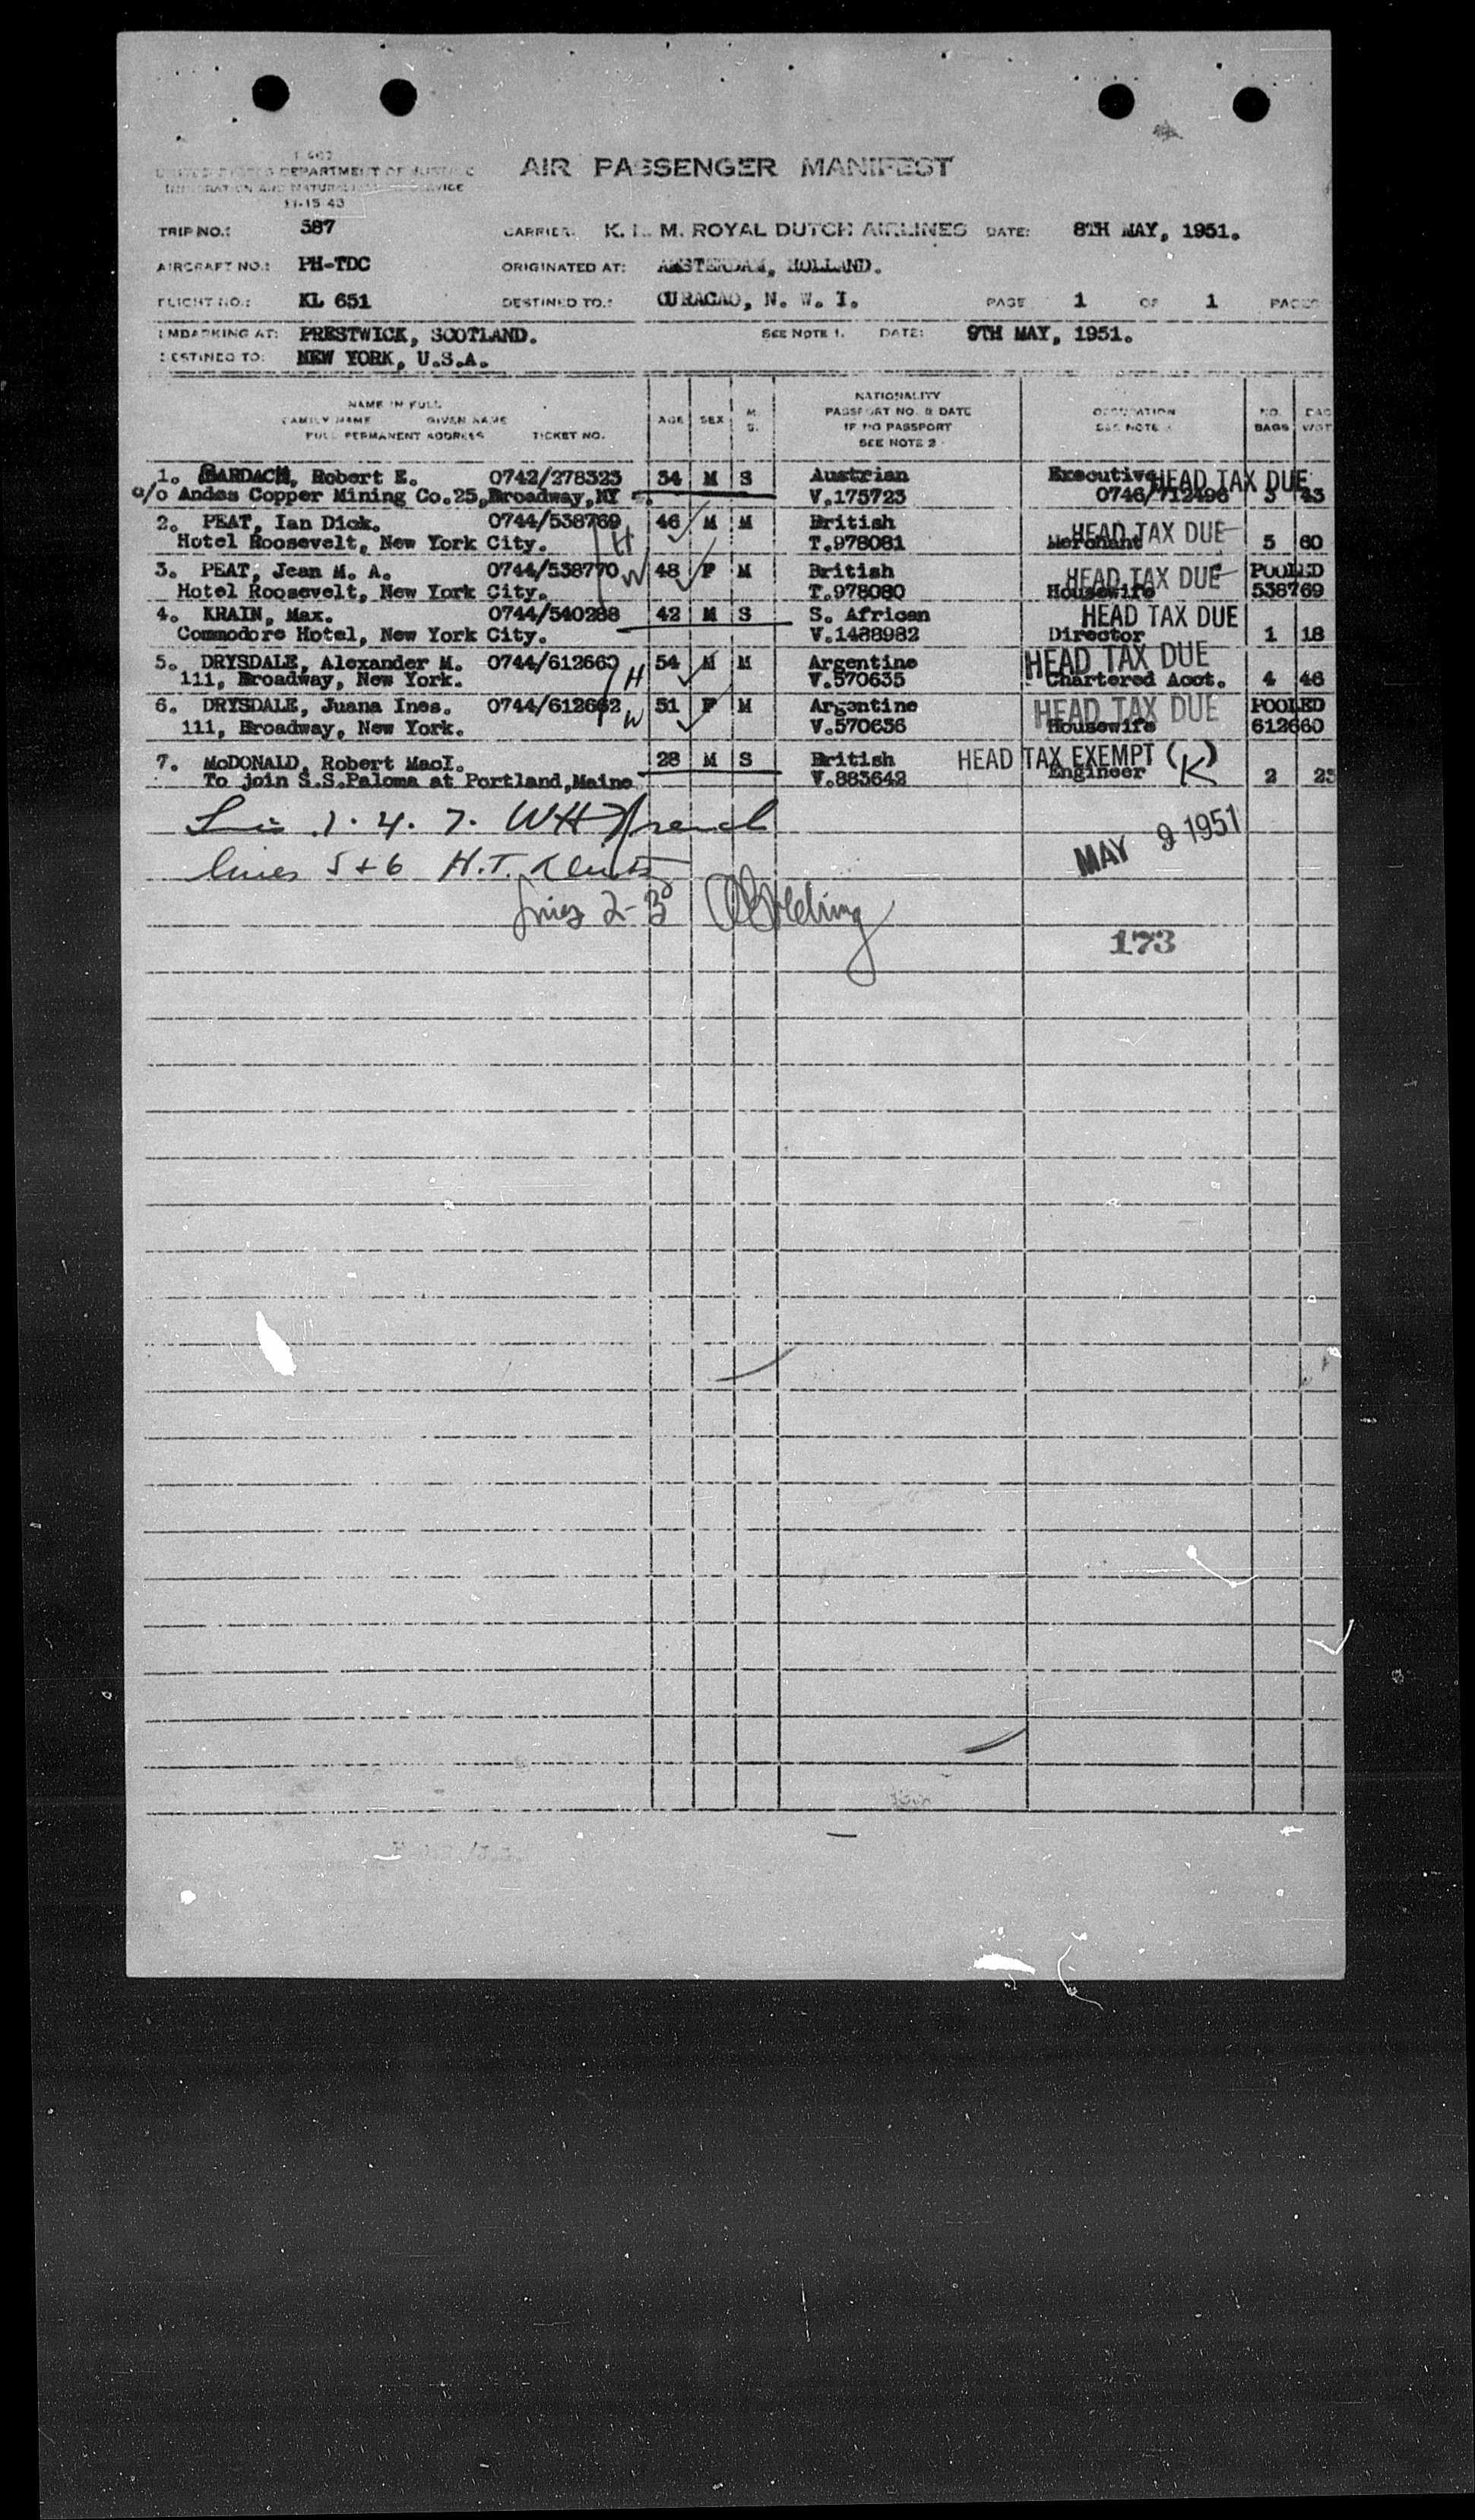 I-467
UNITED STATES DEPARTMENT OF JUSTICE
IMMIGRATION AND NATURALIZATION SERVICE
11-15-43
AIR PASSENGER MANIFEST
TRIP NO.: 587 CARRIER: K. L. M. ROYAL DUTCH AIRLINES DATE: 8TH MAY, 1951.
AIRCRAFT NO.: PH-TDC ORIGINATED AT: AMSTERDAM, HOLLAND.
FLIGHT NO.: KL 651 DESTINED TO: CURACAO, N. W. I. PAGE 1 OF 1 PAGES
EMBARKING AT: PRESTWICK, SCOTLAND. SEE NOTE 1. DATE: 9TH MAY, 1951.
DESTINED TO: NEW YORK, U.S.A.
NAME IN FULL
FAMILY NAME GIVEN NAME
FULL PERMANENT ADDRESS TICKET NO.
AGE SEX M. S.
NATIONALITY
PASSPORT NO. & DATE
IF NO PASSPORT
SEE NOTE 2
OCCUPATION
SEE NOTE
NO. BAGS
BAG WGT.
1. BARDACH, Robert E. 0742/278323 34 M S Austrian Executive HEAD TAX DUE
c/o Andes Copper Mining Co.25,Broadway,NY V.175723 0746/712496 3 43
2. PEAT, Ian Dick. 0744/538769 46 M M British HEAD TAX DUE
Hotel Roosevelt, New York City. H T.978081 Merchant 5 60
3. PEAT, Jean M. A. 0744/538770 W 48 F M British HEAD TAX DUE POOLED
Hotel Roosevelt, New York City. T.978080 Housewife 538769
4. KRAIN, Max. 0744/540288 42 M S S. African HEAD TAX DUE
Commodore Hotel, New York City. V.1488982 Director 1 18
5. DRYSDALE, Alexander M. 0744/612660 54 M M Argentine HEAD TAX DUE
111, Broadway, New York. H V.570635 Chartered Acct. 4 46
6. DRYSDALE, Juana Ines. 0744/612662 W 51 F M Argentine HEAD TAX DUE POOLED
111, Broadway, New York. V.570636 Housewife 612660
7. McDONALD, Robert MacI. 28 M S British HEAD TAX EXEMPT (K)
To join S.S.Paloma at Portland,Maine V.883642 Engineer 2 23
1. 4. 7. WH French
MAY 9 1951
lines 5+6 H.T.
lines 2-3
173